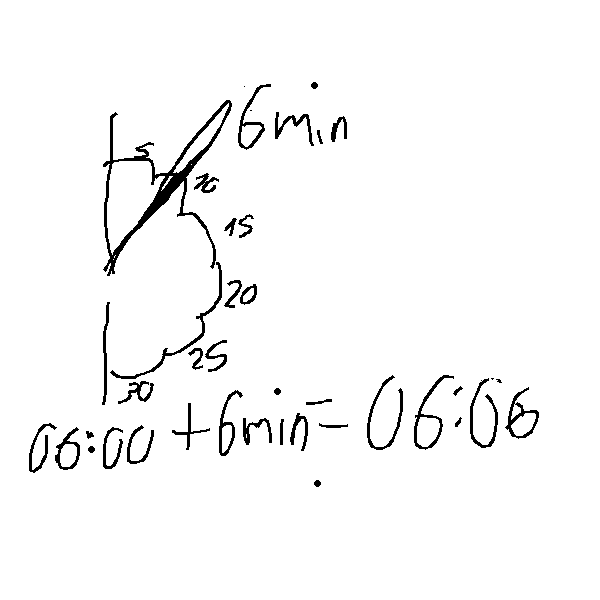 6min
5
10
15
20
25
30
06:00 + 6min = 06:06